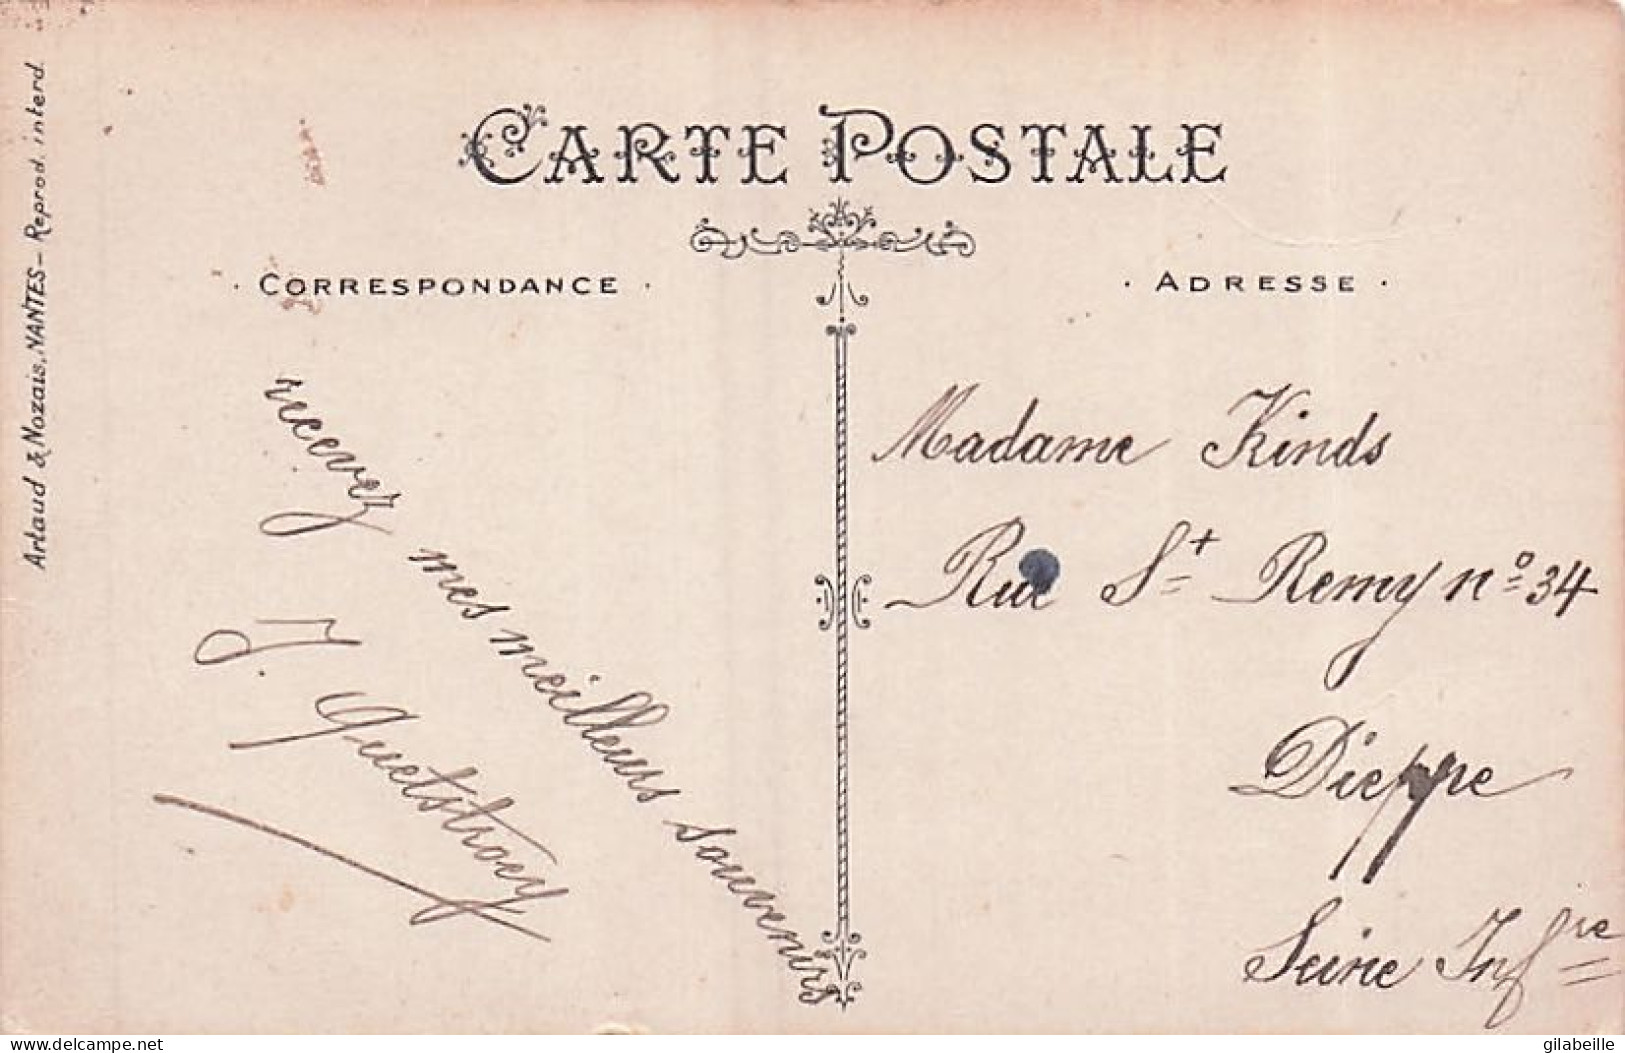 Artaud & Nozais, NANTES - Reprod. interd.
CARTE POSTALE
· CORRESPONDANCE ·
· ADRESSE ·
recevez mes meilleurs souvenirs
J. Quetstroey
Madame Kinds
Rue St Remy no 34
Dieppe
Seine Infre
delcampe.net
gilabeille